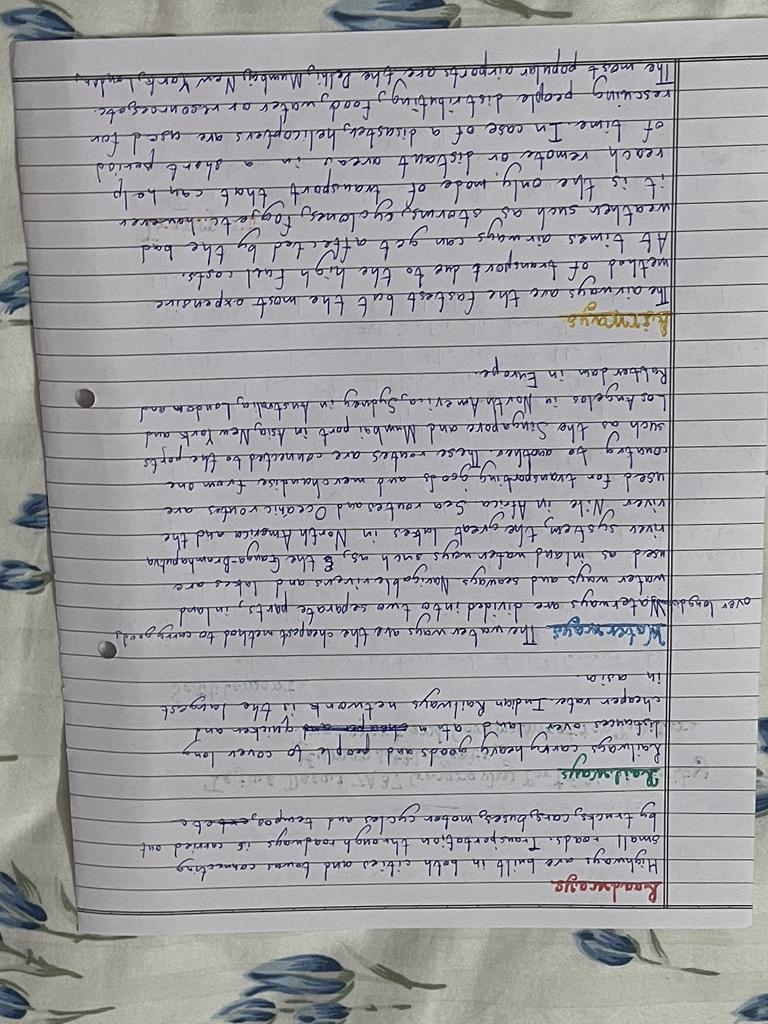 Roadways
Highways are built in both cities and towns connecting
small roads. Transportation through roadways is carried out
by trucks, cars, buses, motor cycles and tempos, etc
Railways
Railways carry heavy goods and people to cover long
distances over land at a quicker and
cheaper rate. Indian Railways network is the largest
in asia.
Waterways The water ways are the cheapest method to carry goods
over long Waterways are divided into two separate parts, inland
water ways and seaways. Navigable rivers and lakes are
used as inland water ways such as, & the Ganga-Bramhaputva
river system, the great lakes in North America and the
river Nile in Africa Sea routes and Oceanic routes are
used for transporting goods and merchandise from one
country to another. These routes are connected to the ports
such as the Singapore and Mumbai port in Asia, New York and
Los Angelos in North America, Sydney in Australia, London and
Rotterdam in Europe.
Airways
The airways are the fastest but the most expensive
method of transport due to the high fuel costs.
At times airways can get affected by the bad
weather such as storms, cyclones, fog, etc. however
it is the only mode of transport that can help
reach remote or distant areas in a short period
of time. In case of a disaster, helicopters are used for
rescuing people distributing, food, water or resources, etc.
The most popular airports are the Delhi, Mumbai, New York, London,